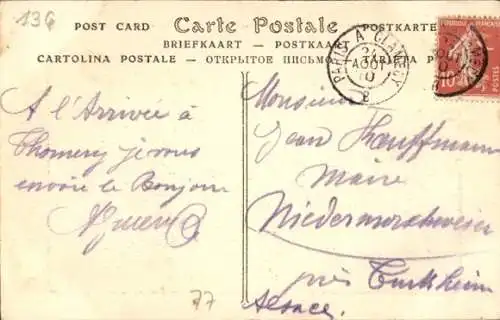 136
POST CARD Carte Postale POSTKARTE
BRIEFKAART - POSTKAART
CARTOLINA POSTALE - ОТКРЫТОЕ ПИСЬМО TARJETA P
PARIS A CLAMECY
24
AOUT
10
POSTES
10
A l'Arrivée à
Thomery je vous
envoie le Bonjour
Monsieur
Jean Kauffmann
Maire
Niedermorschweier
près Turkheim
Alsace
77